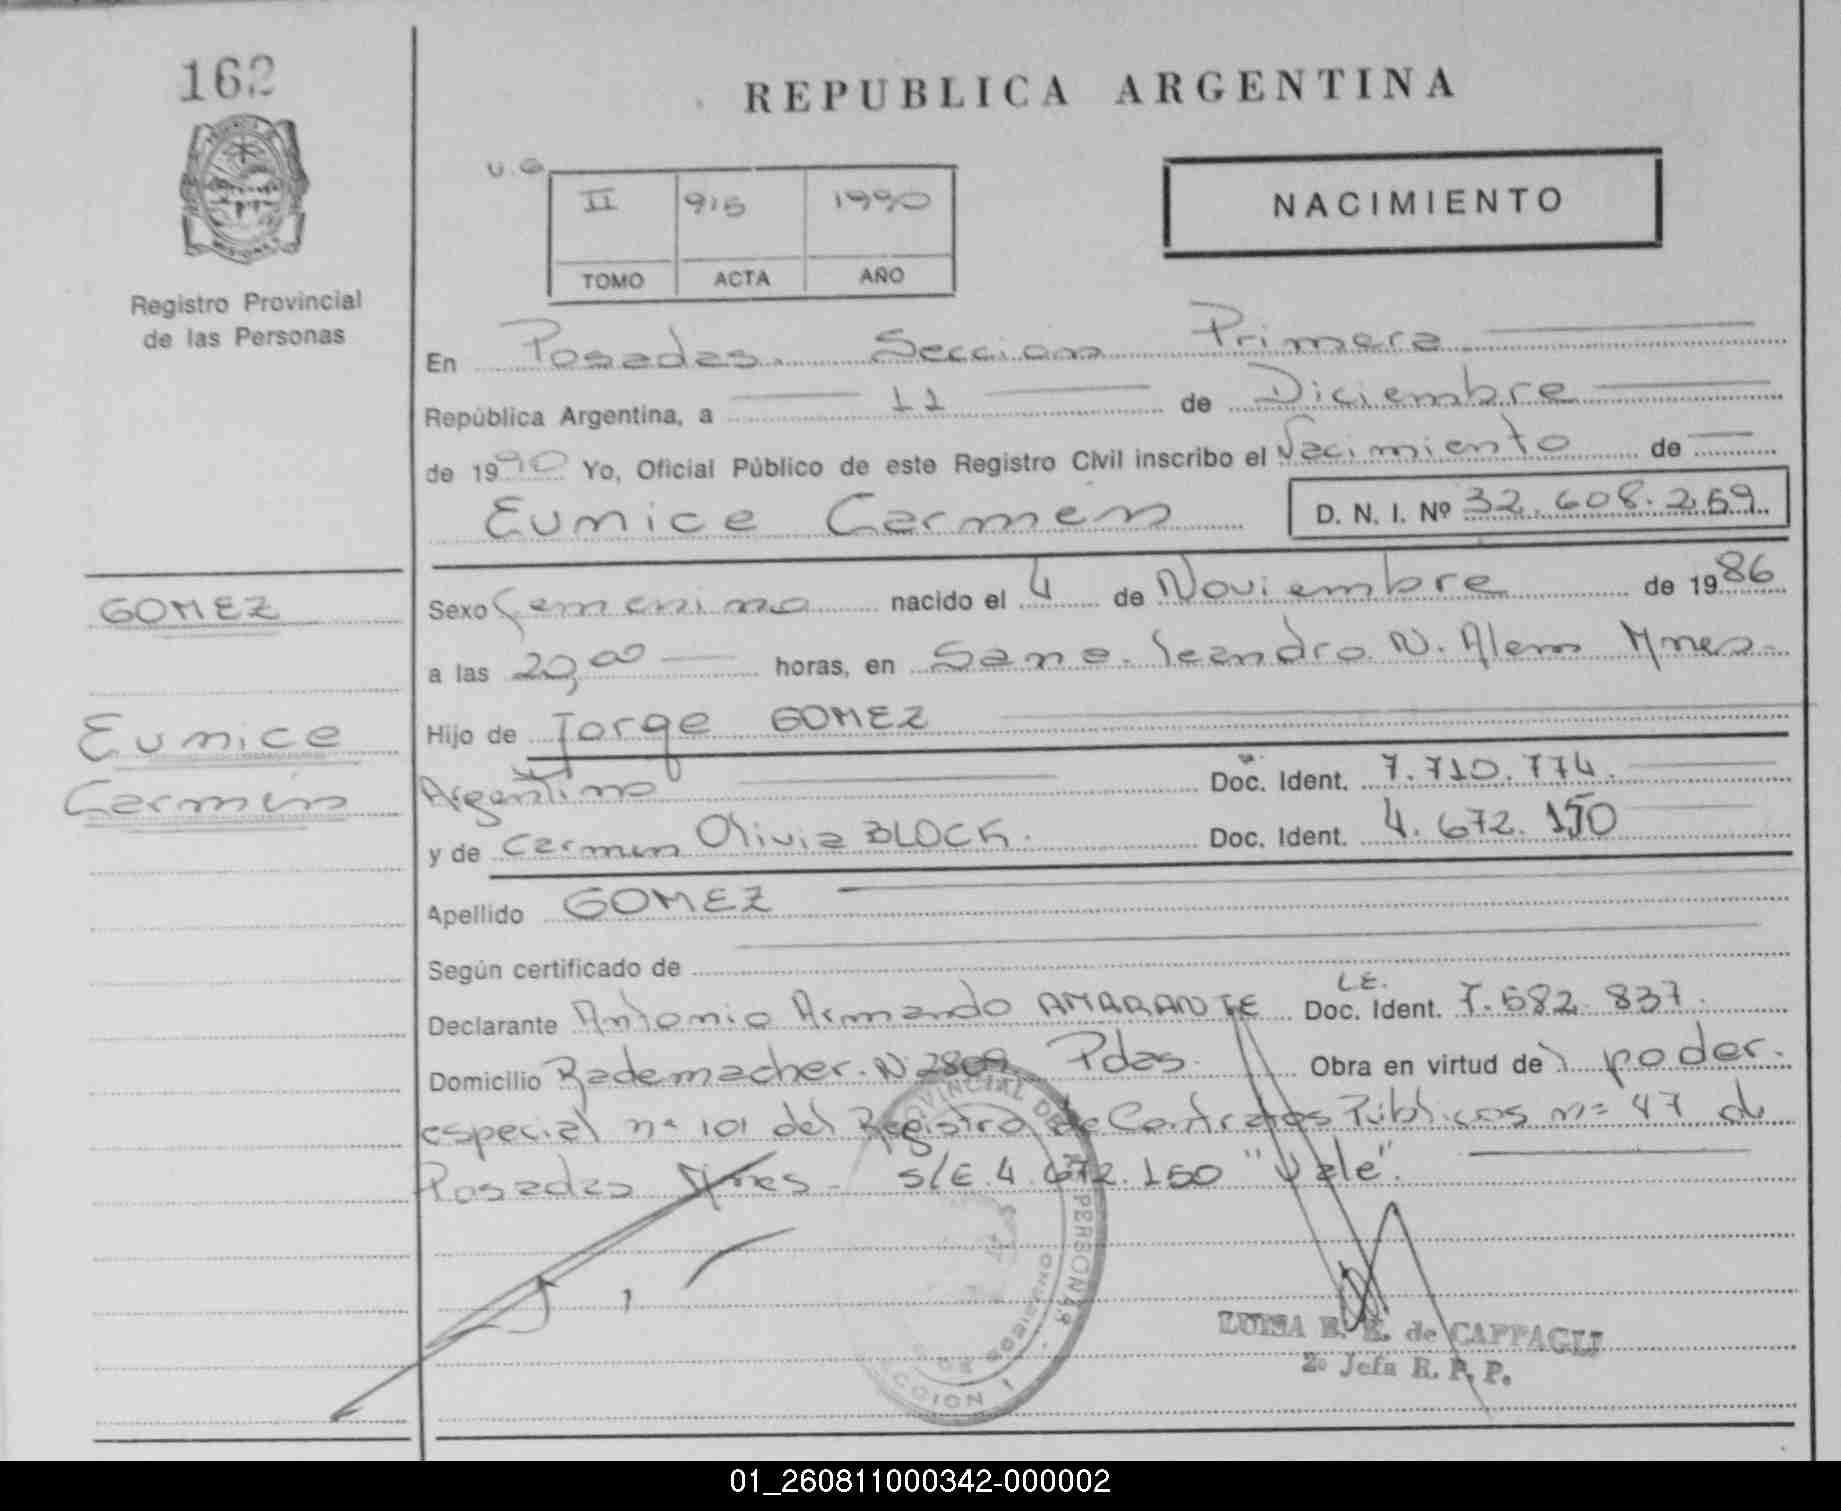 162
REPUBLICA ARGENTINA
U.G
II 915 1990
TOMO ACTA AÑO
NACIMIENTO
MISIONES
Registro Provincial
de las Personas
En Posadas. Seccion Primera
República Argentina, a 11 de Diciembre
de 1990 Yo, Oficial Público de este Registro Civil inscribo el Nacimiento de
Eunice Carmen D. N. I. Nº 32.608.259
GOMEZ
Eunice
Carmen
Sexo femenino nacido el 4 de Noviembre de 1986
a las 20,00 horas, en Sana. Leandro N. Alem Mnes.
Hijo de Jorge GOMEZ
Argentino Doc. Ident. 7.710.774.
y de Carmen Olivia BLOCK. Doc. Ident. 4.672.150
Apellido GOMEZ
Según certificado de
Declarante Antonio Armando AMARANTE L.E. Doc. Ident. 7.582.837.
Domicilio Rademacher. N 2809 Pdas. Obra en virtud de poder.
especial nº 101 del Registro de Contratos Públicos nº 47 de
Posadas Mnes. S/E 4.672.150 "Vale".
PROVINCIAL DE PERSONAS
DE GOBIERNO
SECCION 1
LUISA E. E. de CAPPAGLI
2º Jefa R. P. P.
01_260811000342-000002